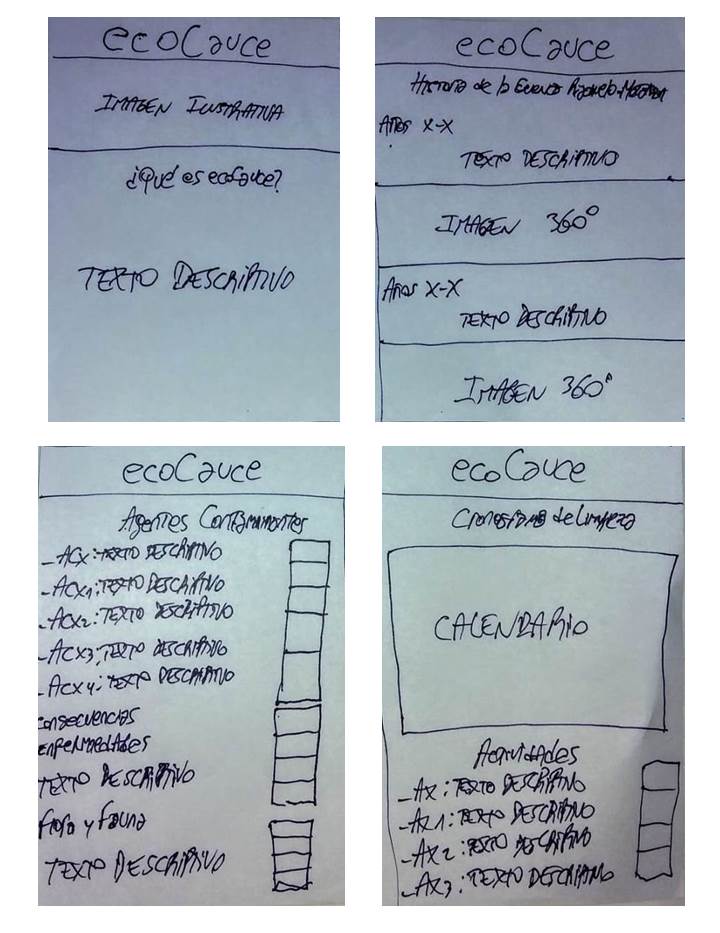 ecoCauce
IMAGEN ILUSTRATIVA
¿Qué es ecoCauce?
TEXTO DESCRIPTIVO
ecoCauce
Historia de la Cuenca Riachuelo-Matanza
Años X-X
TEXTO DESCRIPTIVO
IMAGEN 360°
Años X-X
TEXTO DESCRIPTIVO
IMAGEN 360°
ecoCauce
Agentes Contaminantes
-ACX: TEXTO DESCRIPTIVO
-ACX1: TEXTO DESCRIPTIVO
-ACX2: TEXTO DESCRIPTIVO
-ACX3: TEXTO DESCRIPTIVO
-ACX4: TEXTO DESCRIPTIVO
Consecuencias
enfermedades
TEXTO DESCRIPTIVO
flora y fauna
TEXTO DESCRIPTIVO
ecoCauce
Cronograma de Limpieza
CALENDARIO
Actividades
-AX: TEXTO DESCRIPTIVO
-AX1: TEXTO DESCRIPTIVO
-AX2: TEXTO DESCRIPTIVO
-AX3: TEXTO DESCRIPTIVO